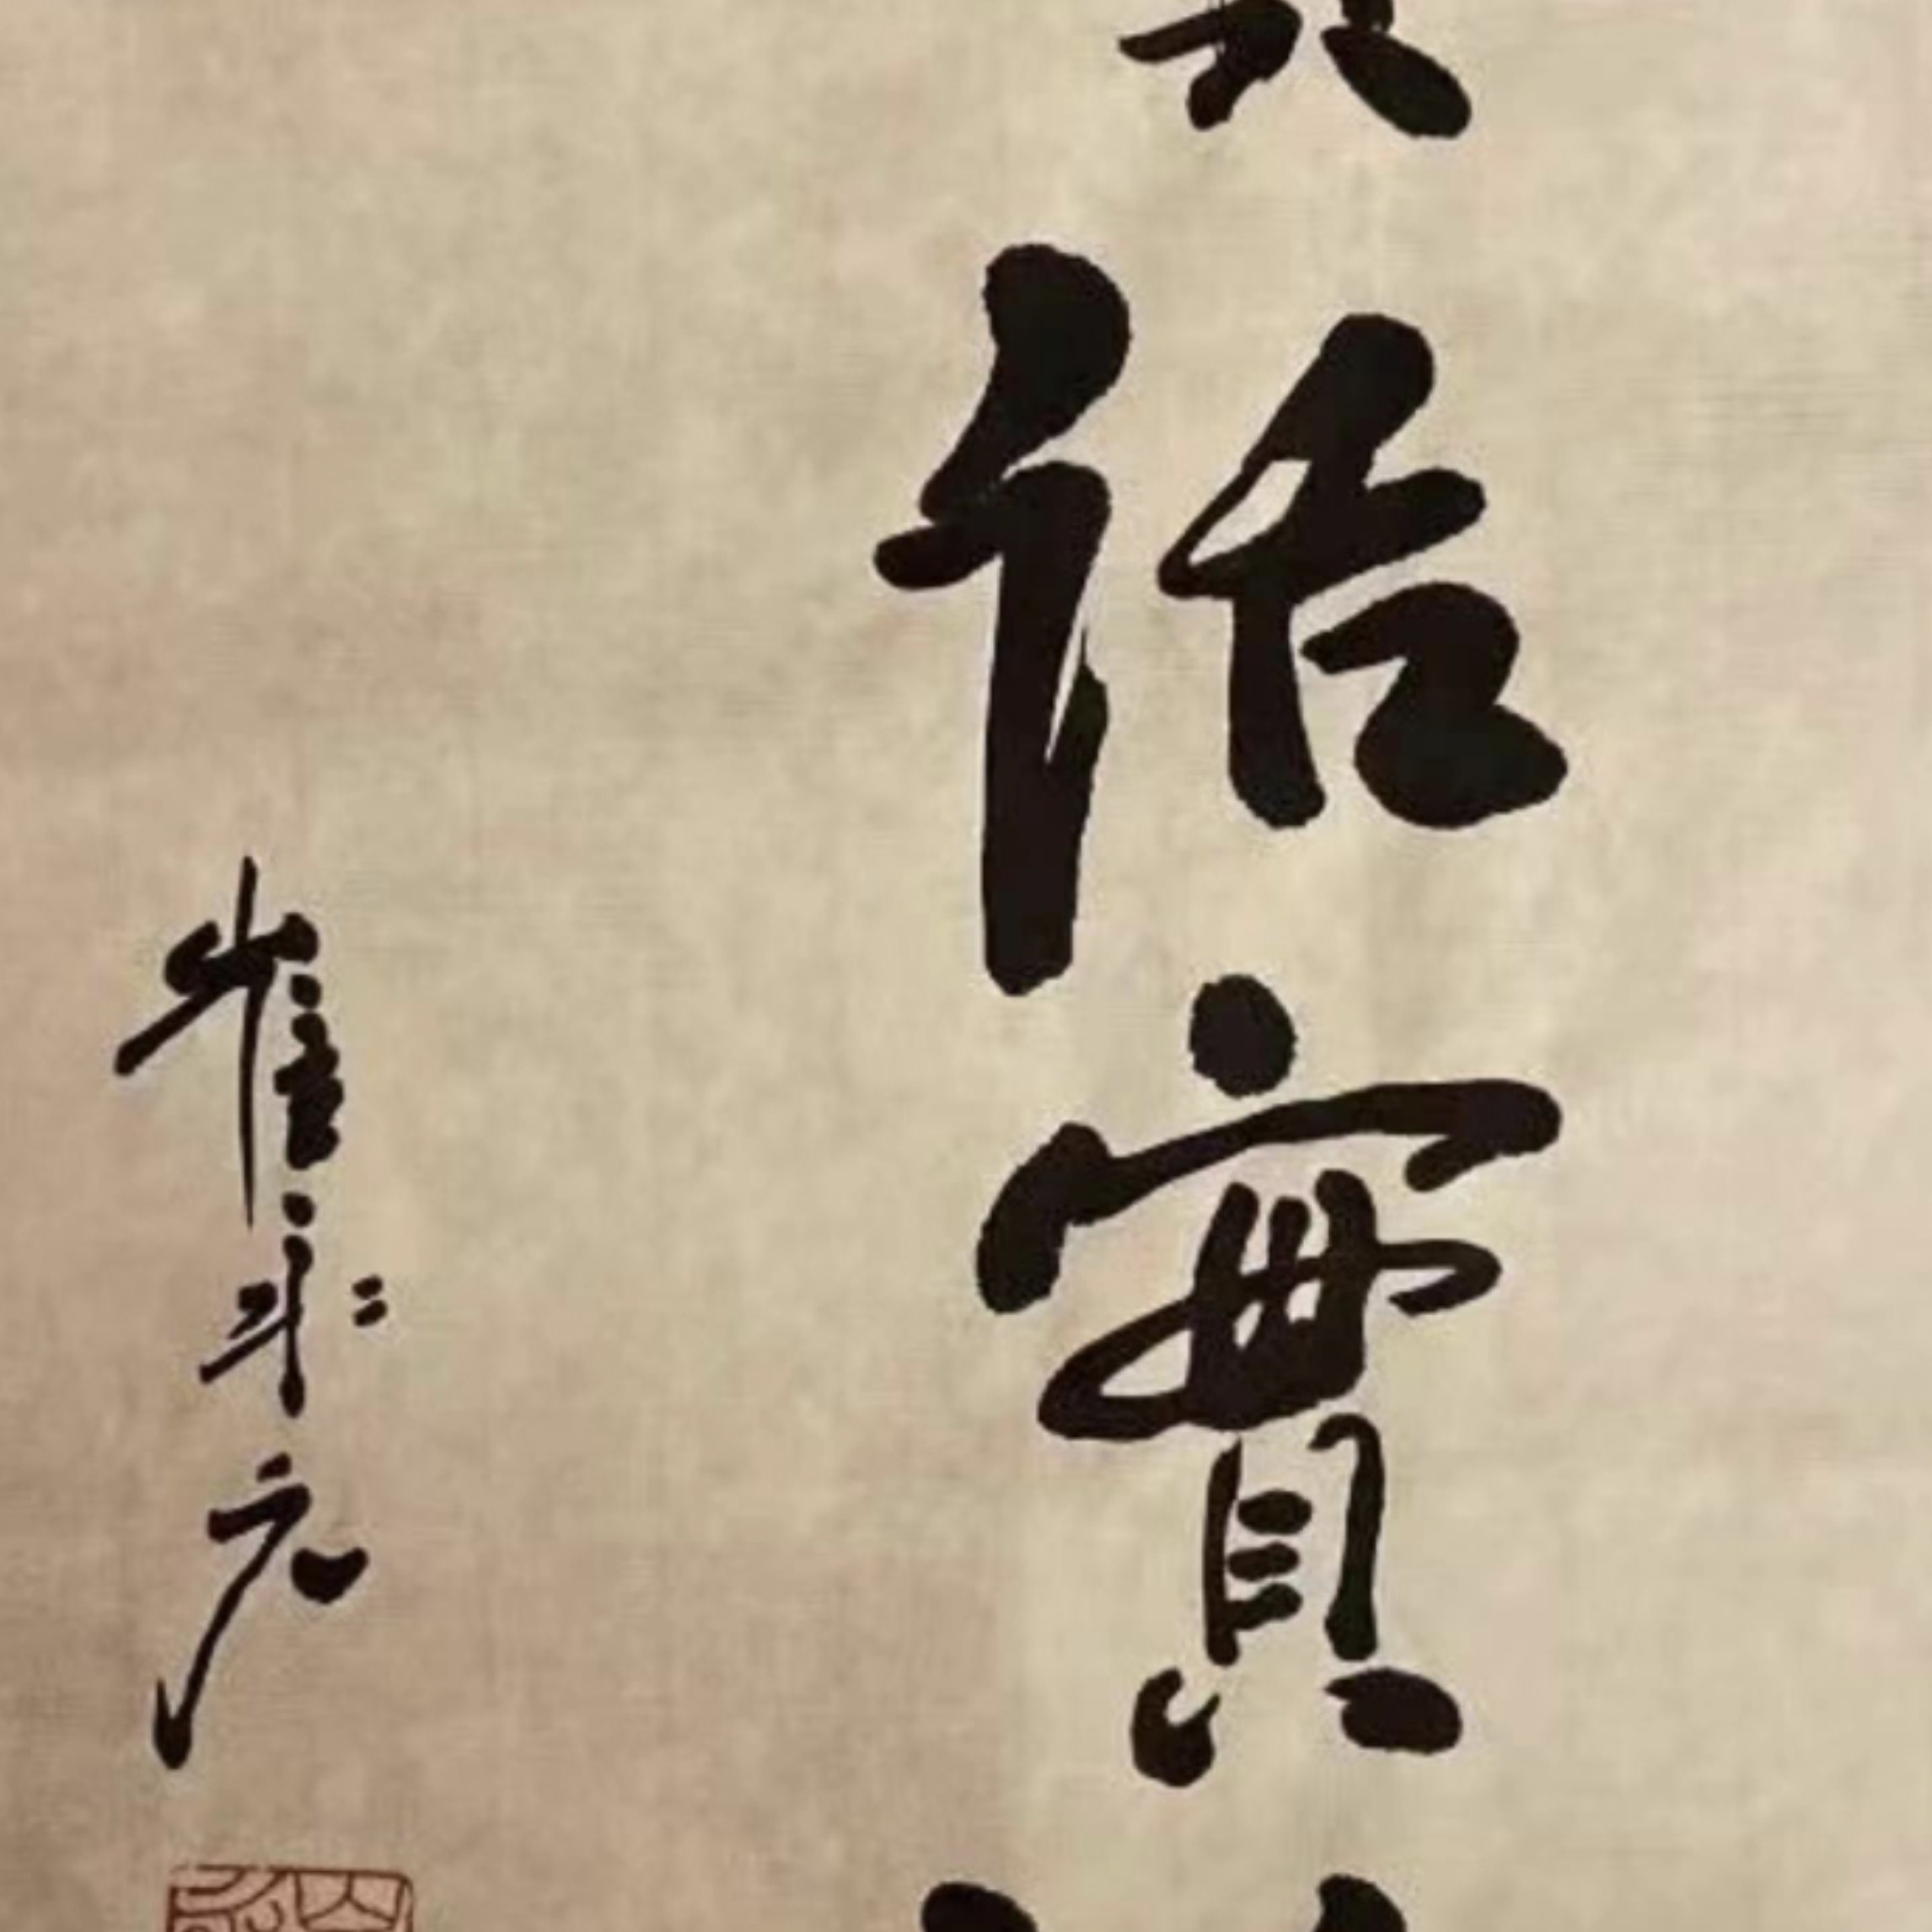 話實
崔永元